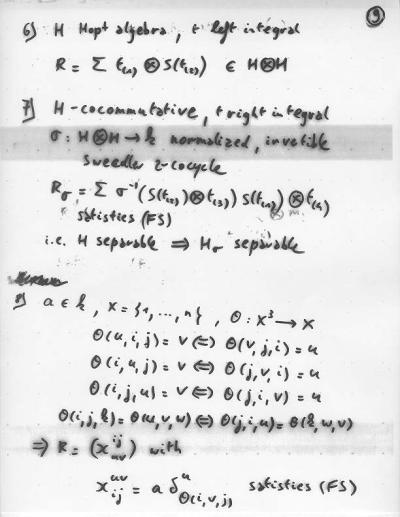 9
6) H Hopf algebra, t left integral
R = ∑ t₍₁₎ ⊗ S(t₍₂₎) ∈ H⊗H
7) H-cocommutative, t right integral
σ: H⊗H → k normalized, invertible
Sweedler 2-cocycle
R_σ = ∑ σ⁻¹(S(t₍₂₎)⊗t₍₃₎) S(t₍₁₎) ⊗ t₍₄₎
satisfies (FS)
i.e. H separable ⟹ H_σ separable
8) a ∈ k, X = {1, ..., n}, Θ: X³ → X
Θ(u,i,j) = v ⟺ Θ(v,j,i) = u
Θ(i,u,j) = v ⟺ Θ(j,v,i) = u
Θ(i,j,u) = v ⟺ Θ(j,i,v) = u
Θ(i,j,k) = Θ(u,v,w) ⟺ Θ(j,i,u) = Θ(k,w,v)
⟹ R = (x^{ij}_{uv}) with
x^{uv}_{ij} = a δ^{u}_{Θ(i,v,j)} satisfies (FS)